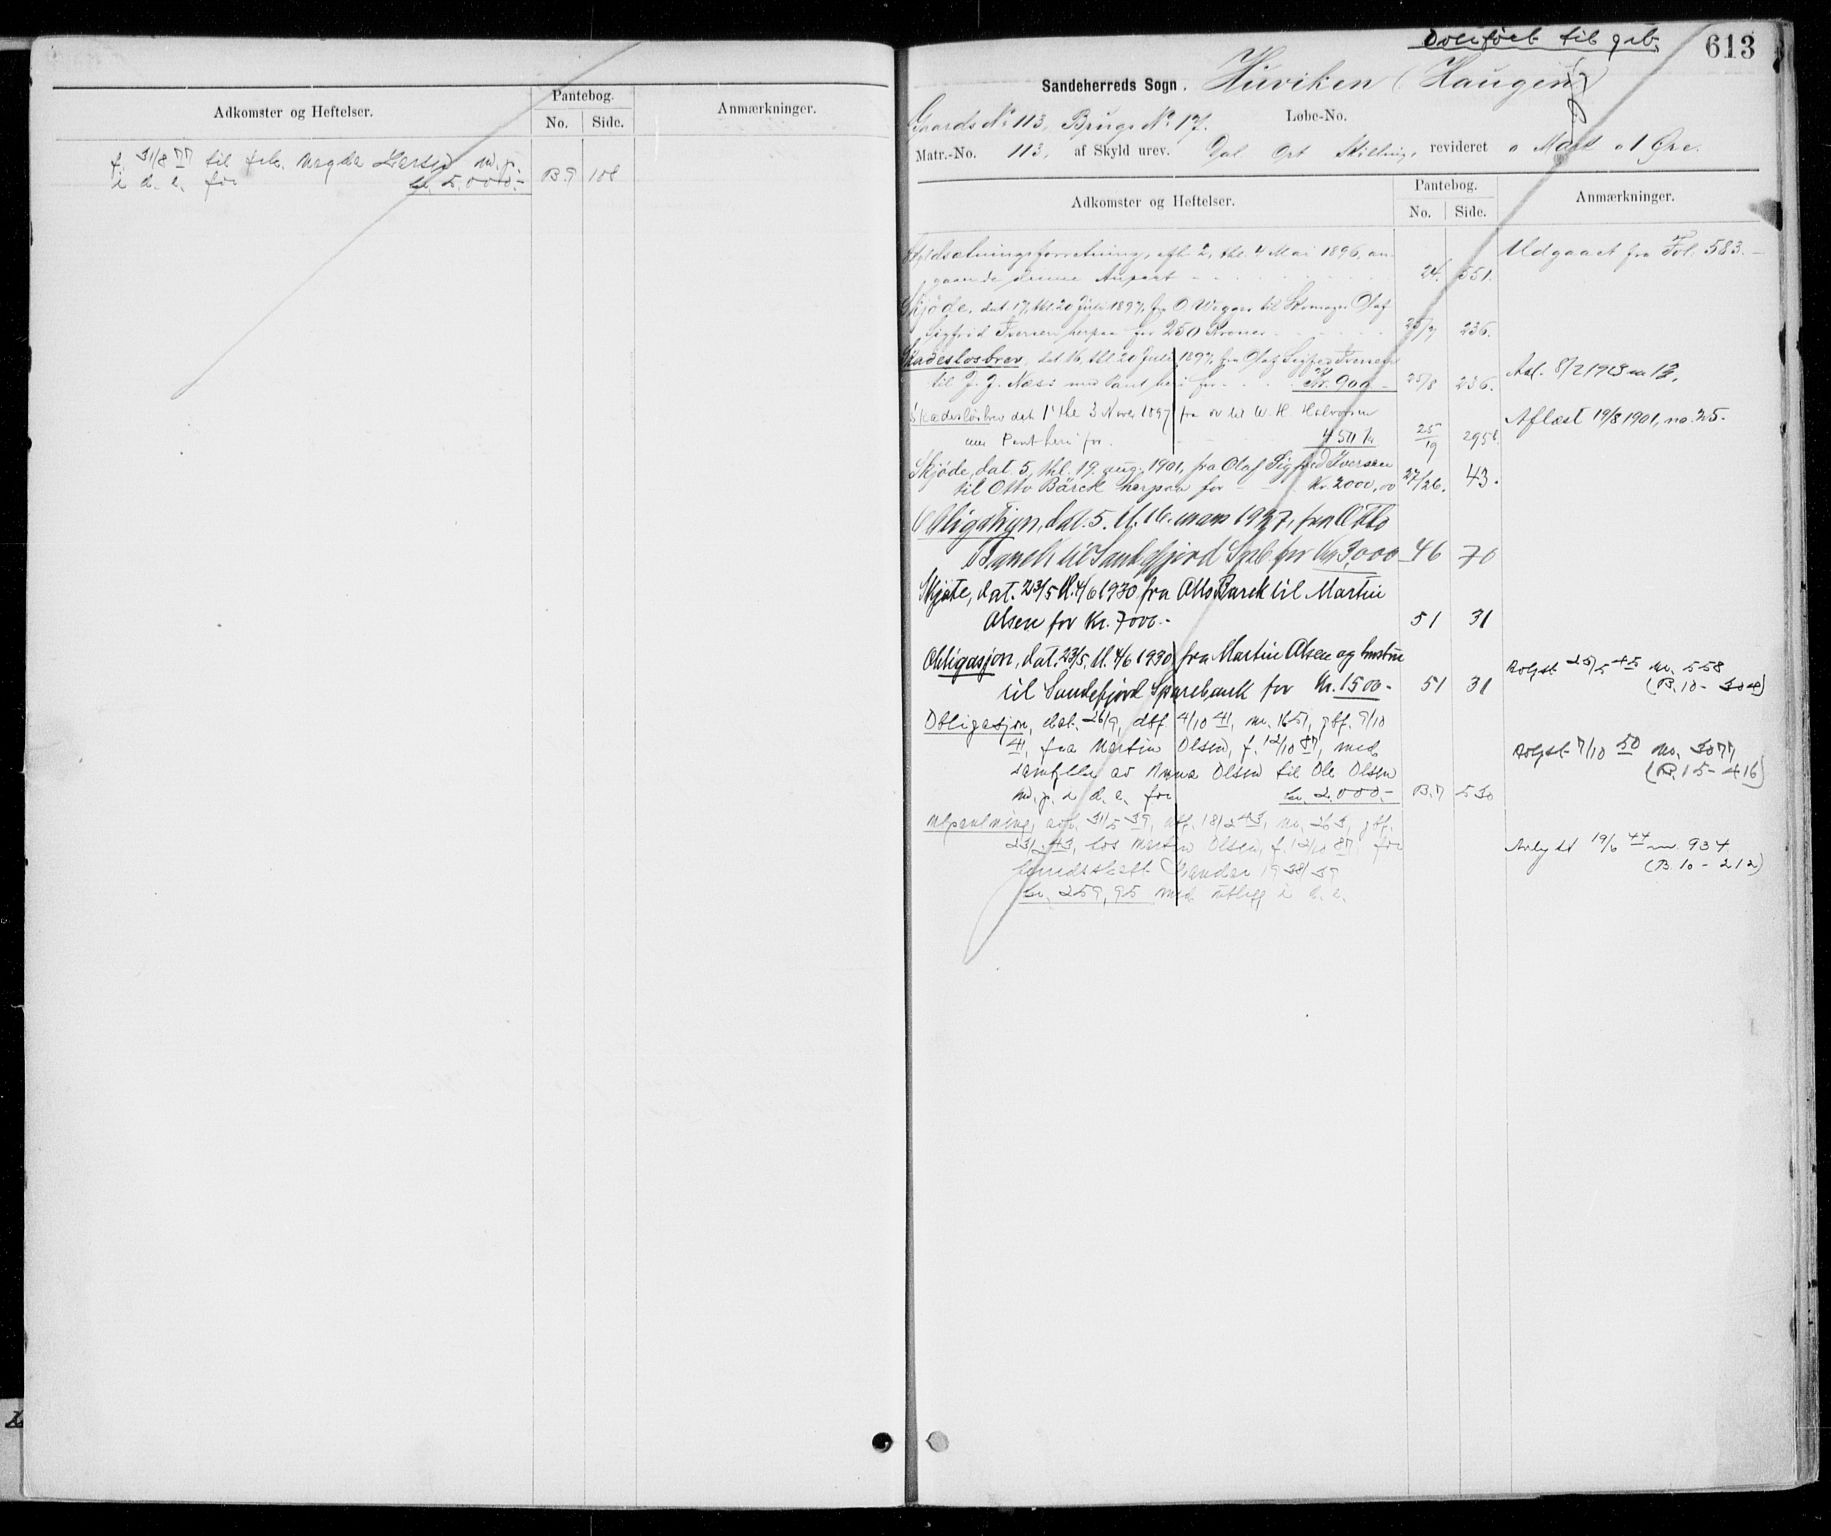 Adkomster og Heftelser.
Pantebog.
No. Side.
Anmærkninger.
f. 31/8 77 til frk. Magda Larsen m. p.
i d. e. for kr. 5.000.- B.9 108
Overført til grb.
613
Sandeherreds Sogn. Huviken (Haugen)
Gaards No 113, Brugs No 17. Løbe-No.
Matr.-No. 113, af Skyld urev. Dal. Ort Skilling, revideret 0 Mark 01 Øre.
Adkomster og Heftelser.
Pantebog.
No. Side.
Anmærkninger.
Skyldsætningsforretning, afh. 2, thl. 4 Mai 1896, an-
gaaende denne Anpart 24. 551.
Udgaaet fra Fol. 583.
Skjøde, dat 17, thl. 20 Juli 1897, fra O Wegger til Skomager Olaf
Sigfrid Iversen herpaa for 250 Kroner 25/7 236.
Skadesløsbrev, dat 16, thl 20 Juli 1897, fra Olaf Sigfred Iversen
til J. J. Næss med Pant heri for Kr. 900 - 25/8 236.
Asl. 8/2 1913 no 13.
Skadesløsbrev dat 1 thl 3 Novbr 1897 fra til W. H. Halvorsen
med Pant heri for 450 Kr 25/19 295
Aflæst 19/8 1901, no. 25.
Skjøde, dat. 5, thl. 19. aug. 1901, fra Olaf Sigfred Iversen
til Otto Bärck herpaa for Kr. 2000,00 27/26. 43.
Obligasjon, dat. 5. tl. 16. mars 1927, fra Otto
Barck til Sandefjord Spb. for Kr. 3000 46 70
Skjøte, dat. 23/5 tl. 4/6 1930 fra Otto Barck til Martin
Olsen for Kr. 7000.- 51 31
Obligasjon, dat. 23/5, tl. 4/6 1930 fra Martin Olsen og hustru
til Sandefjord Sparebank for Kr. 1500- 51 31
Avlyst 25/5 45 nr. 558
(B. 10 - 304)
Obligasjon, dat. 26/9, dbf. 4/10 41, nr. 1651, gbf. 9/10
41, fra Martin Olsen, f. 12/10 87, med
samtykke av Anna Olsen til Ole Olsen
m. p. i d. e. for kr. 2.000.- B. 7 530
Avlyst 7/10 50 nr. 3077
(B. 15 - 416)
Utpantning, avh. 31/5 39, dbf. 18/2 43, nr. 263, gbf.
23/2 43, hos Martin Olsen, f. 12/10 87, for
herredsskatt Sandar 1938/39
kr. 259,95 med utlegg i d. e.
Avlyst 19/6 44 nr. 934
(B 10 - 212)